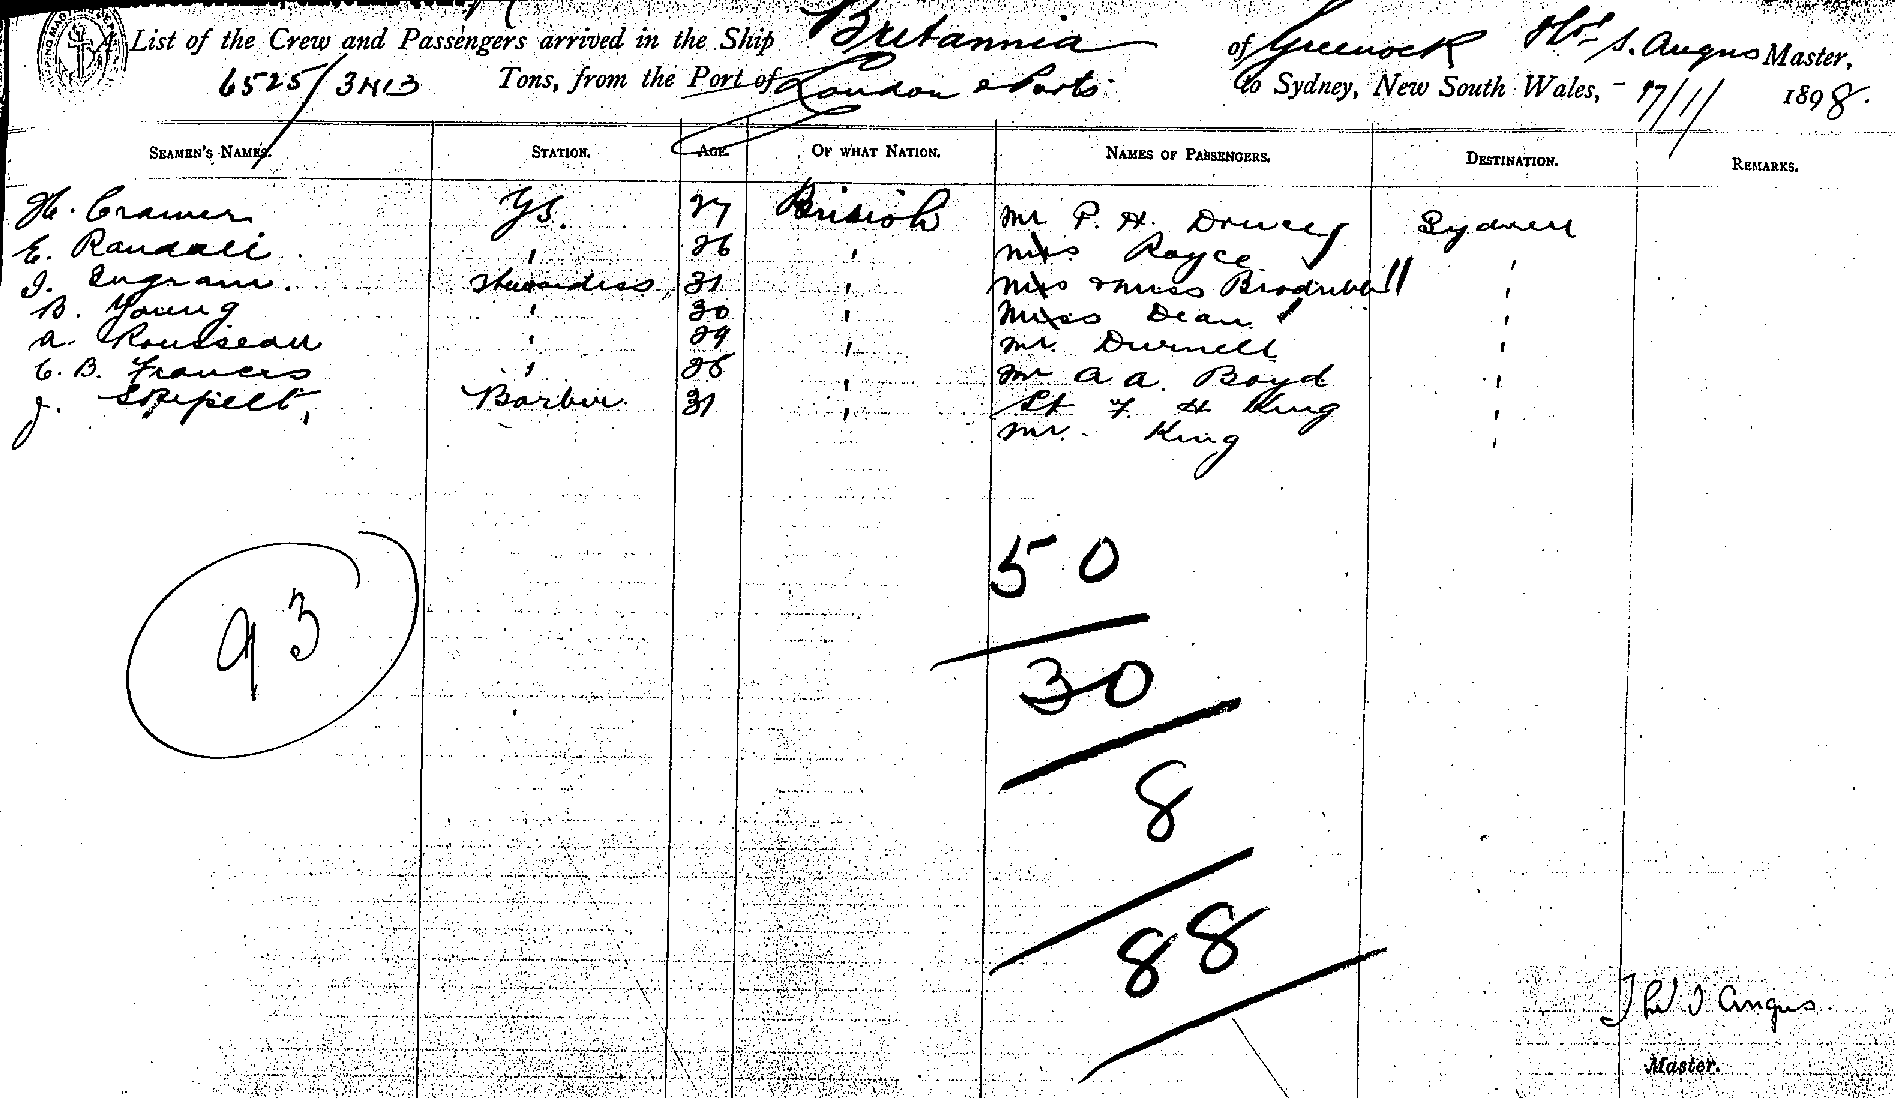 A List of the Crew and Passengers arrived in the Ship Britannia of Greenock S. Angus Master,
6525/3HB Tons, from the Port of London & Ports to Sydney, New South Wales, 17/1/ 1898.
SEAMEN'S NAMES. STATION. AGE. OF WHAT NATION. NAMES OF PASSENGERS. DESTINATION. REMARKS.
H. Cramer G.S. 27 British Mr P. H. Sydney
E. Randall " 26 " Miss Royce "
I. Ingram. Stewardess 31 " Mrs & Miss "
B. Young " 30 " Miss Dean "
A. Rousseau " 29 " Mr. Durnell "
C. B. Francis " 26 " Mr A. A. Boyd "
J. Barber 31 " Lt F. H King "
Mr. King "
50
93
30
8
88
Angus
Master.